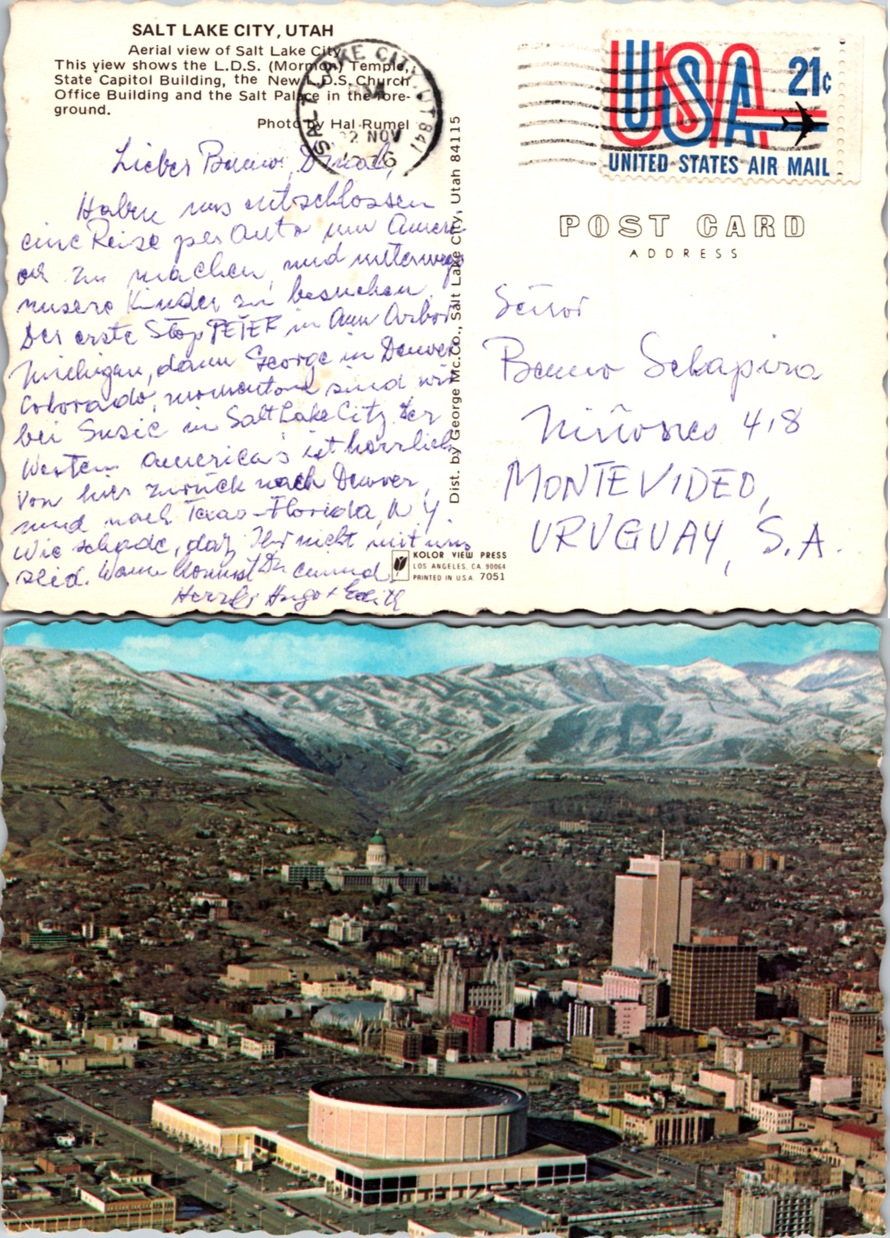 SALT LAKE CITY, UTAH
Aerial view of Salt Lake City
This view shows the L.D.S. (Mormon) Temple,
State Capitol Building, the New L.D.S. Church
Office Building and the Salt Palace in the fore-
ground.
Photo by Hal Rumel
SALT LAKE CITY, UT 841
PM
2 NOV
1976
USA 21c
UNITED STATES AIR MAIL
POST CARD
ADDRESS
Lieber Benno,
Haben uns entschlossen
eine Reise per Auto um Ameri-
zu machen, und unterwegs
unsere Kinder zu besuchen.
Der erste Stop PETER in Ann Arbor
Michigan, dann George in Denver
Colorado, momentan sind wir
bei Susie in Salt Lake City. Der
Westen America's ist herrlich
Von hier zurück nach Denver,
und nach Texas-Florida, N Y
Wie schade, daß Ihr nicht mit uns
seid. Wann kommst Du einmal
Herzl. Hugo + Edith
Dist. by George Mc.Co., Salt Lake City, Utah 84115
Señor
Benno Schapira
418
MONTEVIDEO,
URUGUAY, S.A.
KOLOR VIEW PRESS
LOS ANGELES, CA. 90064
PRINTED IN U.S.A. 7051